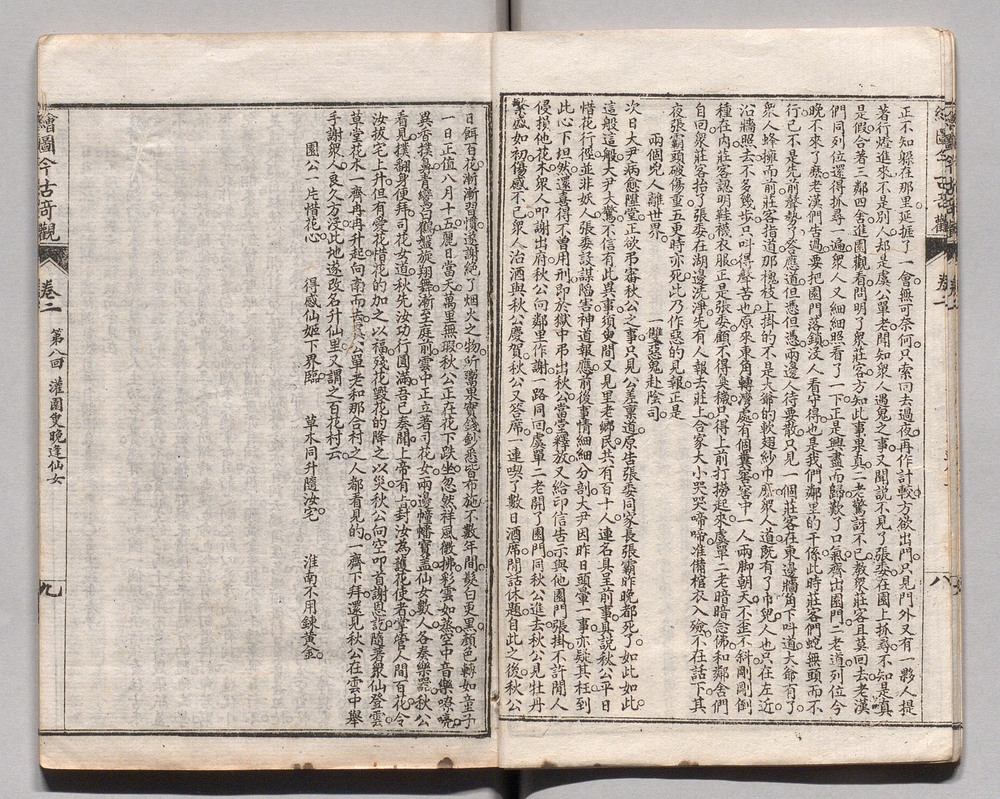 正不知躲在那里延捱了一會無可奈何只索回去過夜再作計較方欲出門只見門外又有一夥人提
著行燈進來不是別人却是虞公單老聞知衆人遇鬼之事又聞說不見了張委在園上抓尋不知是真
是假合著三鄰四舍進園觀看問明了衆莊客方知此事果真二老驚訝不已教衆莊客且莫回去老漢
們同列位還得抓尋一遍衆人又細細照看了一下正是興盡而歸歎了口氣齊出園門二老道列位今
晚不來了麼老漢們告過要把園門落鎖沒人看守得也是我們鄰里的干係此時莊客們蛇無頭而不
行已不是先前聲勢了答應道但憑但憑兩邊人待要散只見一個莊客在東邊牆角下叫道大爺有了
衆人蜂擁而前莊客指道那槐枝上掛的不是大爺的軟翅紗巾麼衆人道既有了巾兒人也只在左近
沿牆照去不多幾步只叫得聲苦也原來東角轉灣處有個糞窖窖中一人兩脚朝天不歪不斜剛剛倒
種在內莊客認明鞋襪衣服正是張委顧不得臭穢只得上前打撈起來虞單二老暗暗念佛和鄰舍們
自回衆莊客抬了張委在湖邊洗淨先有人報去莊上合家大小哭哭啼啼准備棺衣入殮不在話下其
夜張霸頭破傷重五更時亦死此乃作惡的見報正是
兩個兇人離世界 一雙惡鬼赴陰司
次日大尹病愈陞堂正欲弔審秋公之事只見公差稟道原告張委同家長張霸昨晚都死了如此如此
這般這般大尹大驚不信有此異事須臾間又見里老鄉民共有百十人連名具呈前事具說秋公平日
惜花行徑並非妖人張委設謀陷害神道報應前後事情細細分剖大尹因昨日頭暈一事亦疑其枉到
此心下坦然還喜得不曾用刑即於獄中弔出秋公當堂釋放又給印信告示與他園門張掛不許閒人
侵損他花木衆人叩謝出府秋公向鄰里作謝一路同回虞單二老開了園門同秋公進去秋公見牡丹
繁盛如初傷感不已衆人治酒與秋公慶賀秋公又答席一連喫了數日酒席閒話休題自此之後秋公
日餌百花漸漸習慣遂謝絕了烟火之物所鬻果實錢鈔悉皆布施不數年間髮白更黑顏色轉如童子
一日正值八月十五麗日當天萬里無瑕秋公正在花下趺坐忽然祥風微拂彩雲如蒸空中音樂嘹喨
異香撲鼻青鸞白鶴盤旋翔舞漸至庭前雲中正立著司花女兩邊幢幡寶蓋仙女數人各奏樂器秋公
看見撲翻身便拜司花女道秋先汝功行圓滿吾已奏聞上帝有旨封汝為護花使者專管人間百花令
汝拔宅上升但有愛花惜花的加之以福殘花毀花的降之以災秋公向空叩首謝恩訖隨著衆仙登雲
草堂花木一齊冉冉升起向南而去虞公單老和那合村之人都看見的一齊下拜還見秋公在雲中舉
手謝衆人良久方沒此地遂改名升仙里又謂之百花村云
園公一片惜花心 得感仙姬下界臨 草木同升隨汝宅 淮南不用鍊黃金
繪圖今古奇觀 卷二 第八回 灌園叟晚逢仙女 九